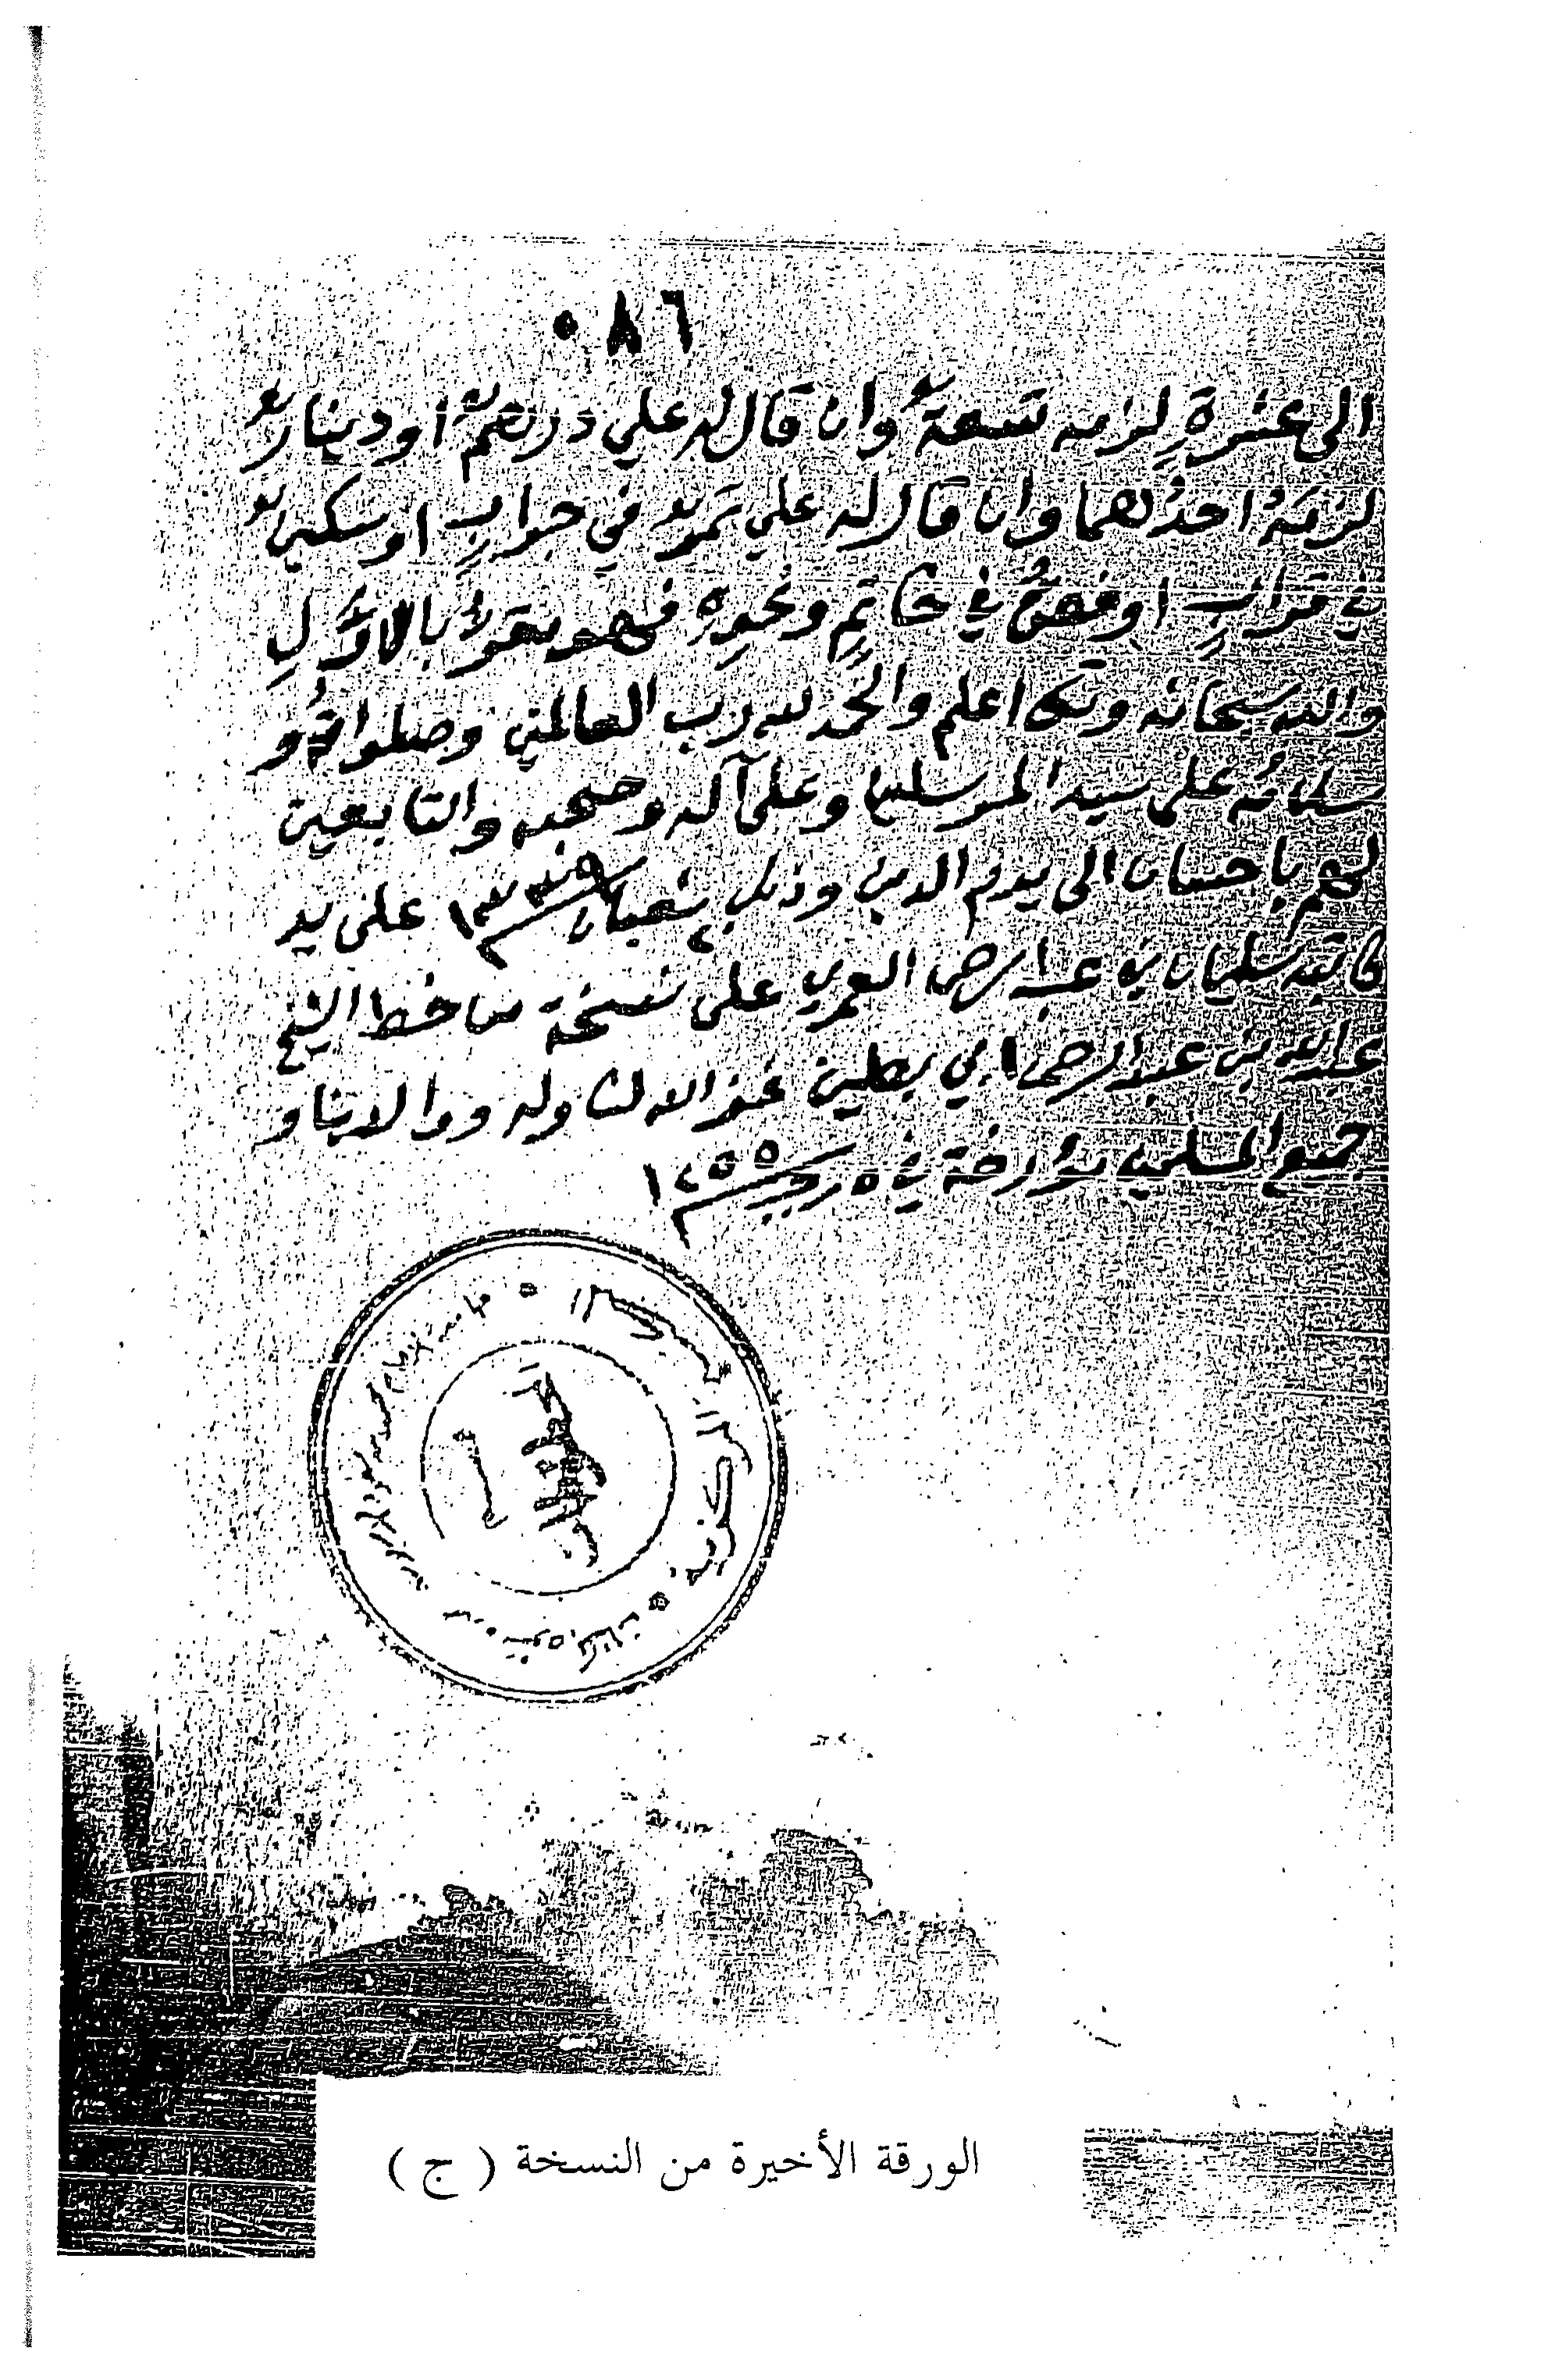 ٠٨٦
الى عشرةٍ لزمه تسعةٌ وان قال له علي درهمٌ او دينارٌ
لزمَهُ احدُهما وان قال له علي تمرٌ في جرابٍ او سكينٌ
في قرابٍ او فصٌ في خاتمٍ ونحوِهِ فهو مقرٌ بالاوَّلِ
والله سبحانه وتعا اعلم والحمد لله رب العالمين وصلواتُهُ و
سلامُه على سيد المرسلين وعلى آله وصحبه والتابعين
لهم باحسان الى يوم الدين وذلك شعبان سنة على يد
كاتبه سليمان بن عبد الرحمن العمري على نسخة من خط الشيخ
عبد الله بن عبد الرحمن ابي بطين غفر الله لنا وله ووالدينا و
جميع المسلمين مؤرخة في ٥ رجب ١٢٥٥
المركزية
المخطوطات
قسم
الورقة الأخيرة من النسخة ( ج )